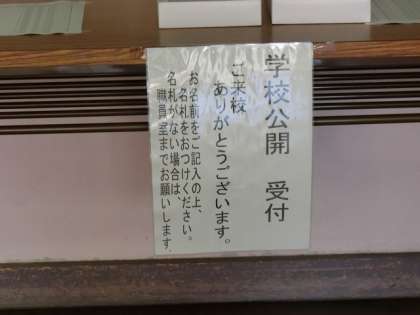 学校公開 受付
ご来校
ありがとうございます。
お名前をご記入の上、
名札をおつけください。
名札がない場合は、
職員室までお願いします。